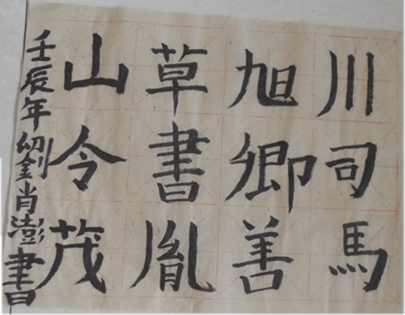 川司馬
旭卿善
草書胤
山令茂
壬辰年劉肖澎書